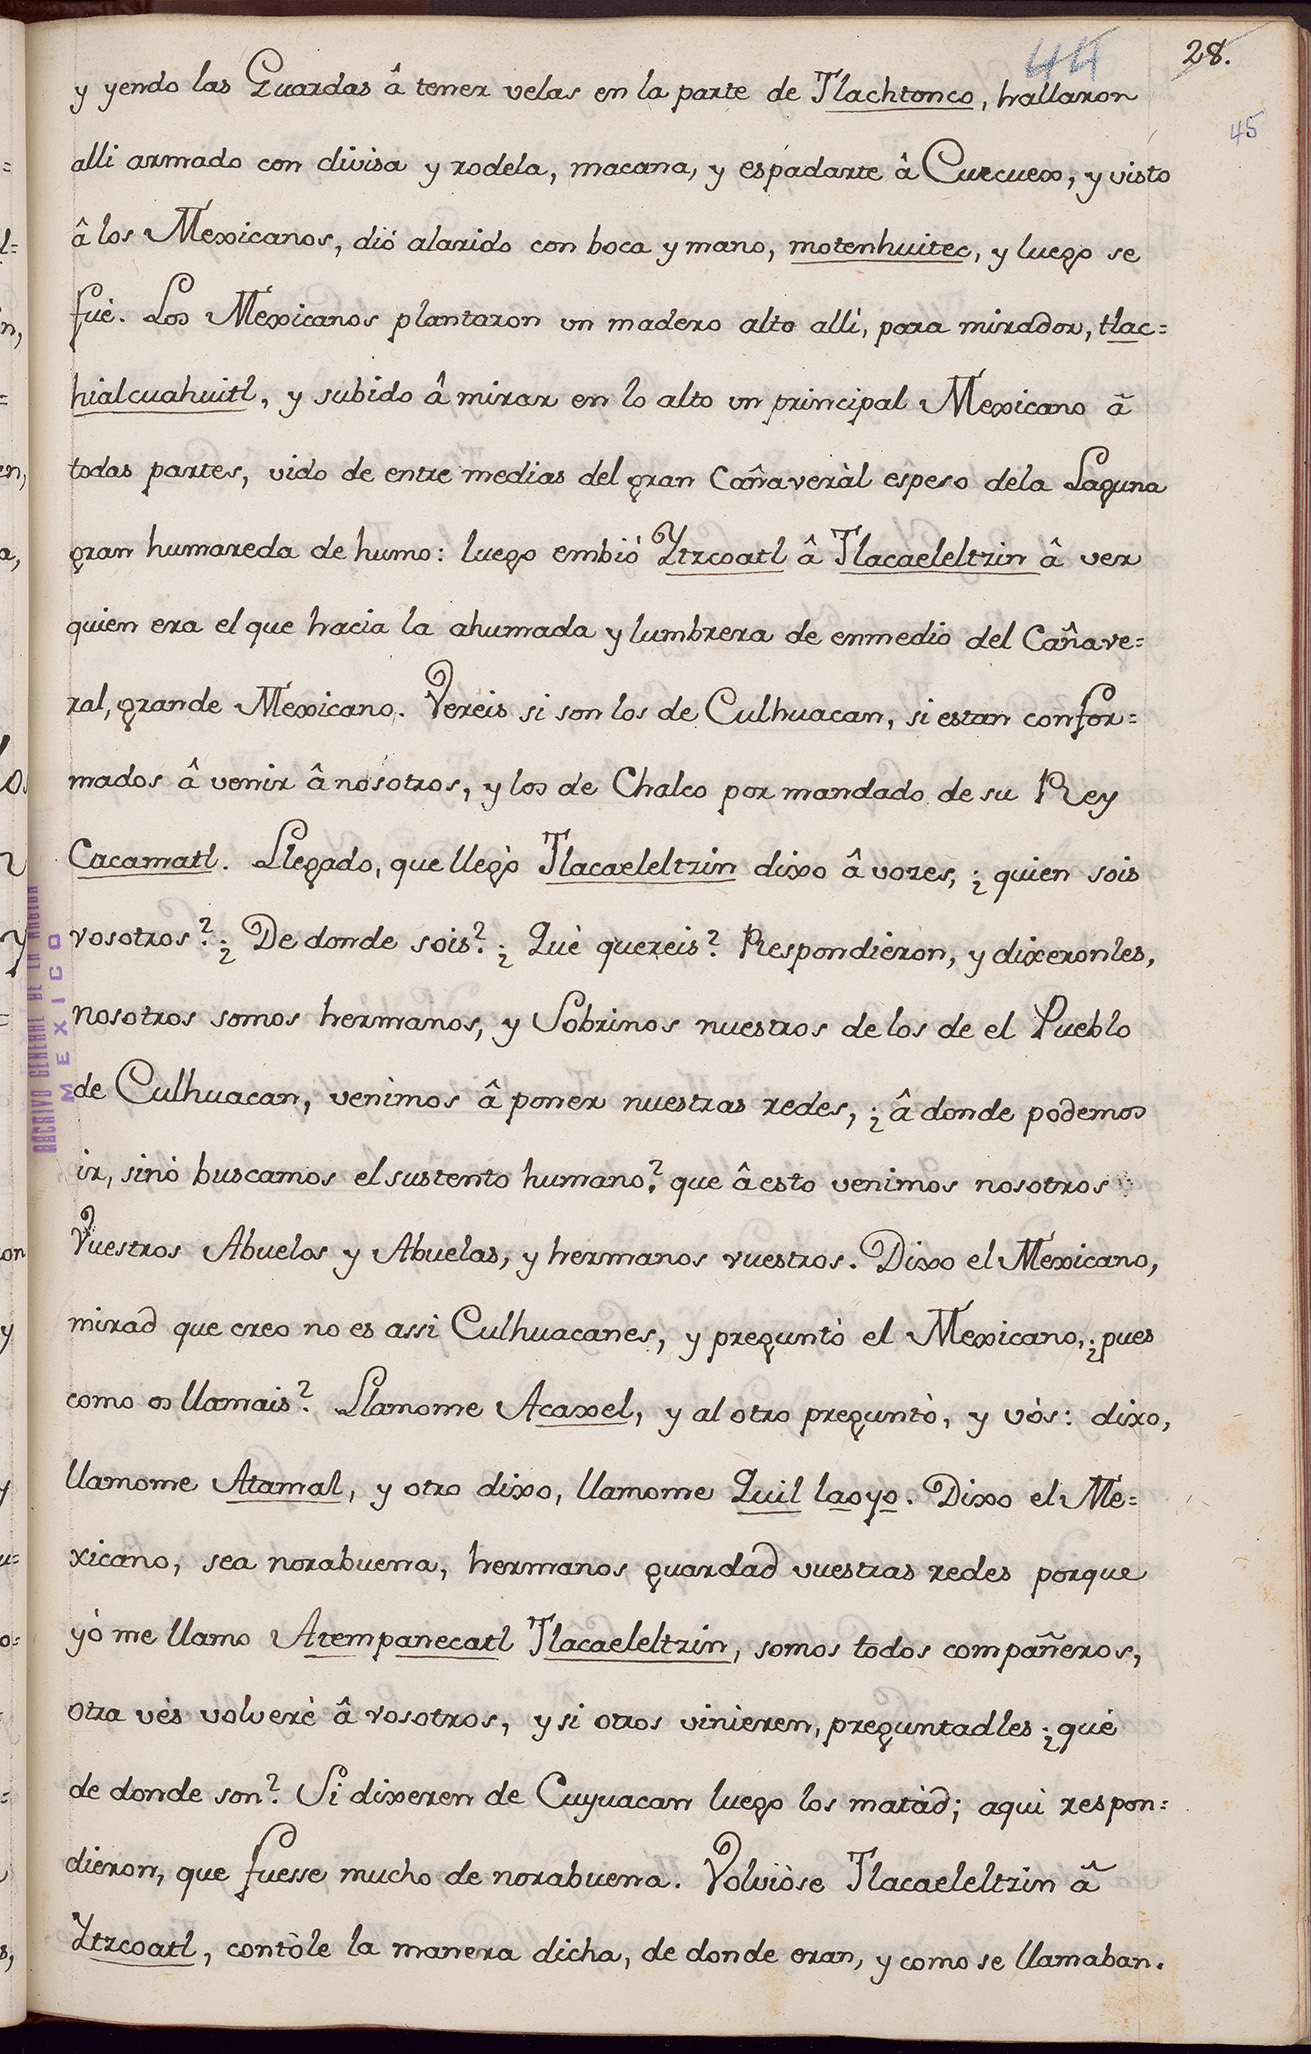 44
28.
45
y yendo las Guardas â tener velas en la parte de Tlachtonco, hallaron
alli armado con divisa y rodela, macana, y espadarte â Cuecuex, y visto
â los Mexicanos, dió alarido con boca y mano, motenhuitec, y luego se
fuè. Los Mexicanos plantaron un madero alto alli, para mirador, tlac=
hialcuahuitl, y subido â mirar en lo alto un principal Mexicano â
todas partes, vido de entre medias del gran Cañaveràl espeso dela Laguna
gran humareda de humo: luego embió Ytzcoatl â Tlacaeleltzin â ver
quien era el que hacia la ahumada y lumbrera de enmedio del Cañave=
ral, grande Mexicano. Vereis si son los de Culhuacan, si estan confor=
mados â venir â nosotros, y los de Chalco por mandado de su Rey
Cacamatl. Llegado, que llegò Tlacaeleltzin dixo â vozes, ¿quien sois
vosotros? ¿De donde sois? ¿Què quereis? Respondieron, y dixeronles,
nosotros somos hermanos, y Sobrinos nuestros de los de el Pueblo
de Culhuacan, venimos â poner nuestras redes, ¿â donde podemos
ir, sinò buscamos el sustento humano? que â esto venimos nosotros
Vuestros Abuelos y Abuelas, y hermanos vuestros. Dixo el Mexicano,
mirad que creo no es assi Culhuacanes, y preguntò el Mexicano, ¿pues
como os llamais? Llamome Acaxel, y al otro preguntò, y vòs: dixo,
llamome Atamal, y otro dixo, llamome Quil laoyo. Dixo el Me=
xicano, sea norabuena, hermanos guardad vuestras redes porque
yò me llamo Atempanecatl Tlacaeleltzin, somos todos compañeros,
otra vès volverè â vosotros, y si otros vinieren, preguntadles ¿què
de donde son? Si dixeren de Cuyuacan luego los matàd; aqui respon=
dieron, que fuesse mucho de norabuena. Volviòse Tlacaeleltzin â
Ytzcoatl, contòle la manera dicha, de donde eran, y como se llamaban.
ARCHIVO GENERAL DE LA NACION
MEXICO